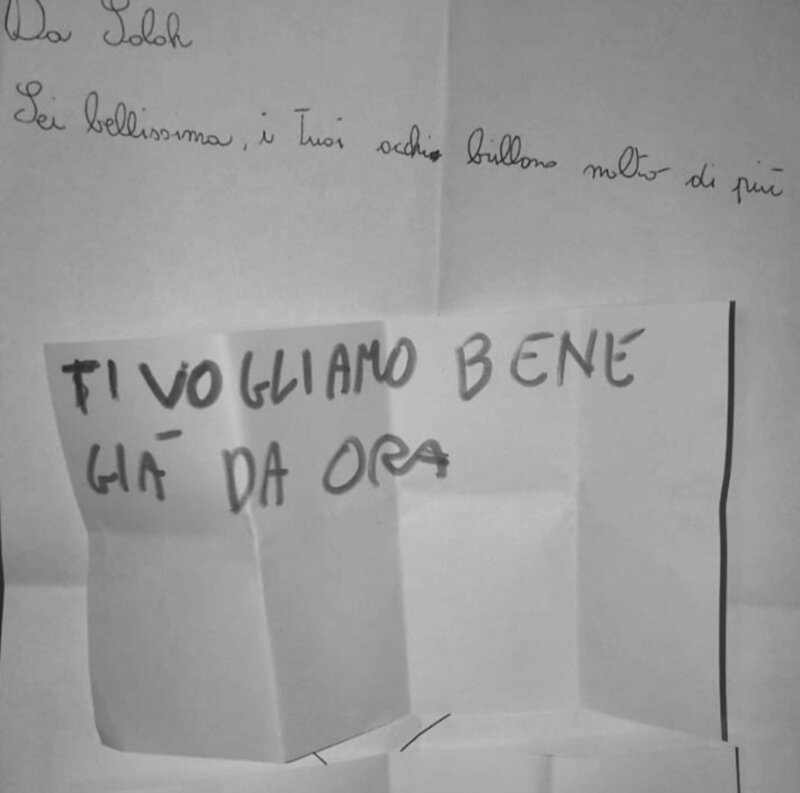 Da Soloh
Sei bellissima, i tuoi occhi brillono molto di più
TI VOGLIAMO BENE
GIÀ DA ORA